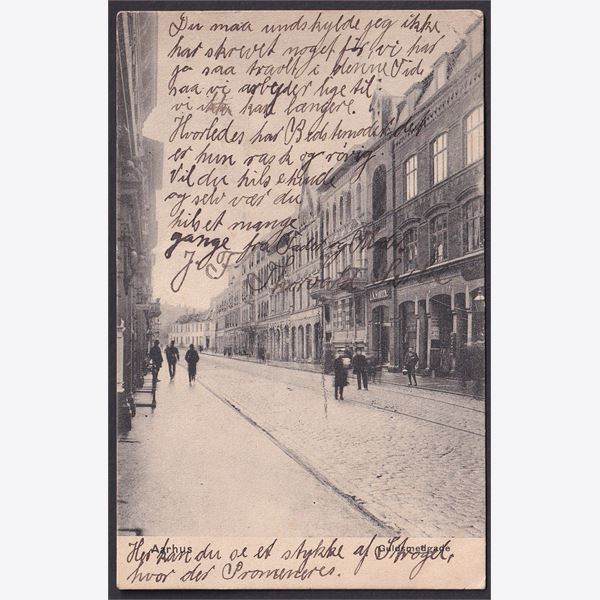 Du maa undskylde jeg ikke
har skrevet noget før vi har
jo saa travlt i denne Tid
saa vi arbejder lige til
vi ikke kan længere.
Hvorledes har Bedstemoder det
er hun rask og rørig.
Vil du hilse hende
og selv vær du
hilset mange
gange fra Fader og
J.A. HJORTH.
Aarhus
Guldsmedgade
Her kan du se et stykke af Strøget,
hvor der Promeneres.